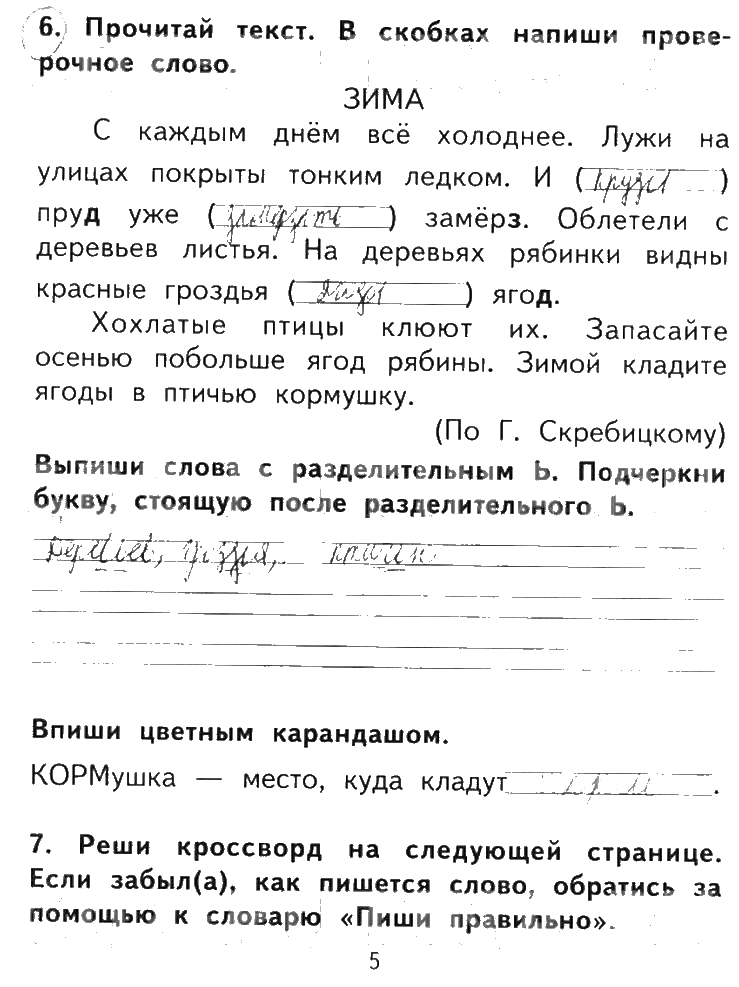 6. Прочитай текст. В скобках напиши прове-
рочное слово.
ЗИМА
С каждым днём всё холоднее. Лужи на
улицах покрыты тонким ледком. И (пруды)
пруд уже (замёрзать) замёрз. Облетели с
деревьев листья. На деревьях рябинки видны
красные гроздья (ягоды) ягод.
Хохлатые птицы клюют их. Запасайте
осенью побольше ягод рябины. Зимой кладите
ягоды в птичью кормушку.
(По Г. Скребицкому)
Выпиши слова с разделительным Ь. Подчеркни
букву, стоящую после разделительного Ь.
Впиши цветным карандашом.
КОРМушка — место, куда кладут .
7. Реши кроссворд на следующей странице.
Если забыл(а), как пишется слово, обратись за
помощью к словарю «Пиши правильно».
5